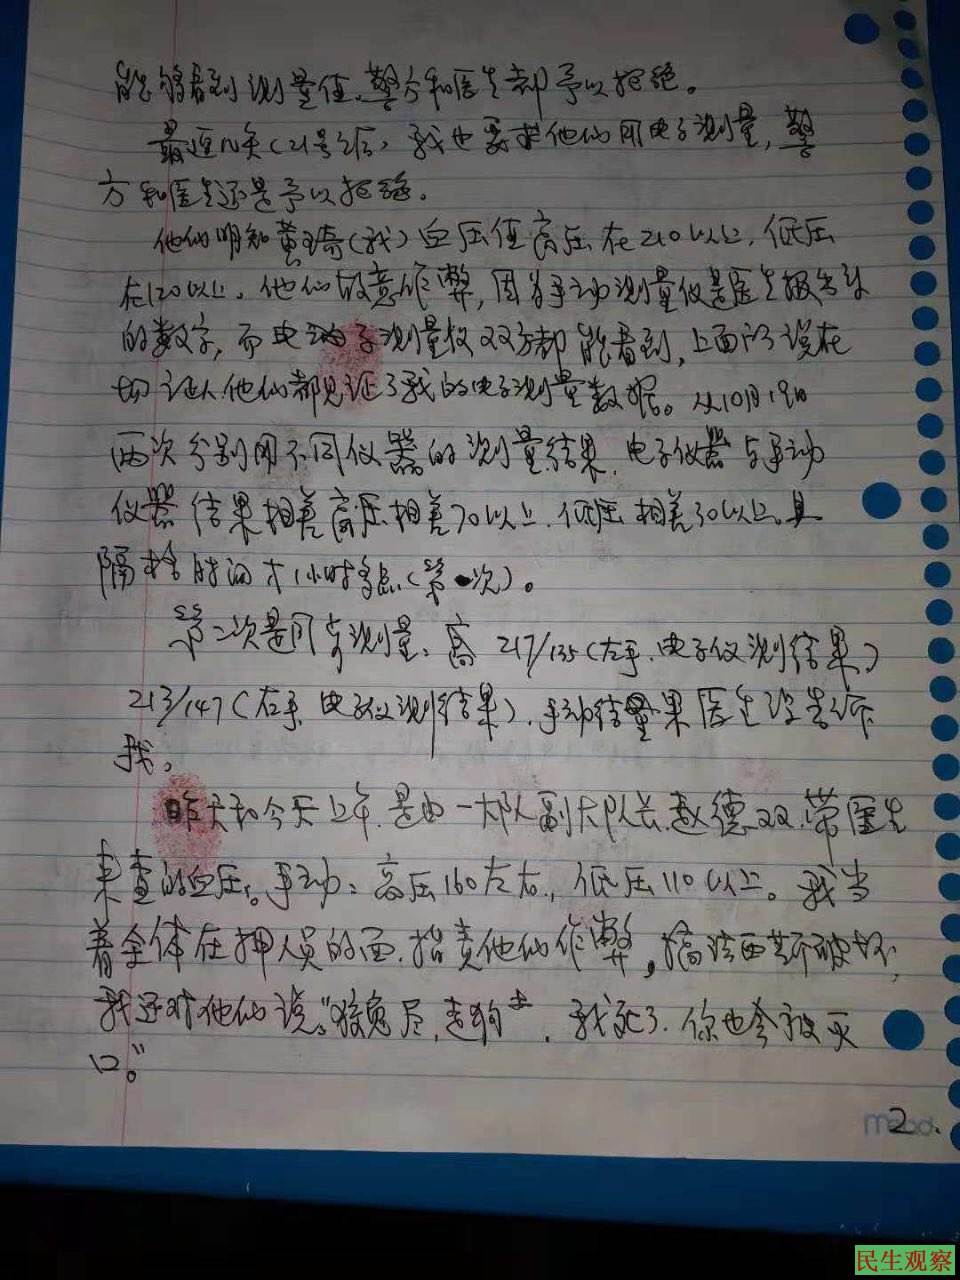 能够看到测量值，警方和医生都予以拒绝。
最近几天（21号之后），我也要求他们用电子测量，警
方和医生还是予以拒绝。
他们明知黄琦（我）血压值高压在210以上，低压
在120以上，他们故意作弊，因为手动测量仪是医生报告
的数字，而电子测量仪双方都能看到，上面所说在
证人他们都见证了我的电子测量数据。从10月19日
两次分别用不同仪器的测量结果，电子仪器与手动
仪器结果相差高压相差70以上，低压相差30以上，且
隔 时间才1小时多点（第一次）。
第二次是同另测量，高217/135（左手，电子仪测结果）
213/147（右手，电子仪测结果），手动结果医生没告诉
我。
昨天和今天上午，是由一大队副大队长赵德双，带医生
来查的血压。手动：高压160左右，低压110以上。我当
着全体在押人员的面，指责他们作弊，搞法西斯破坏，
我还对他们说。"狡兔尽，走狗 ，我死了，你也会被灭
口。"
2、
mead
民生观察